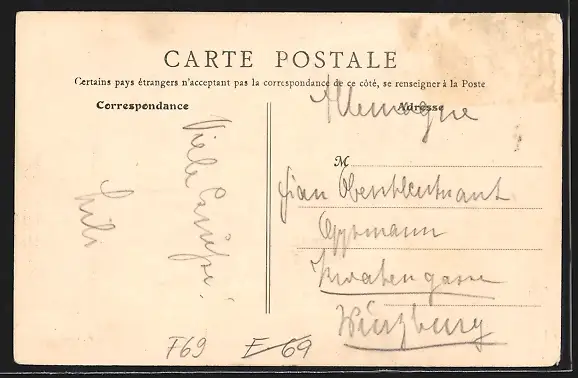 CARTE POSTALE
Certains pays étrangers n'acceptant pas la correspondance de ce côté, se renseigner à la Poste
Correspondance
Adresse
Allemagne
M
Frau Oberstleutnant
Oppmann
Kroatengasse
Würzburg
Viele Grüße!
Lili
F69 E-69